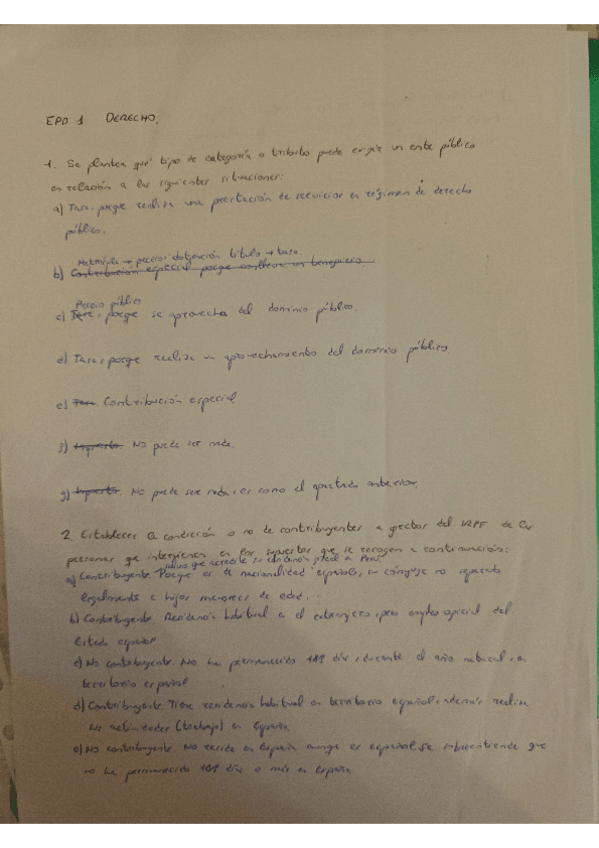 EPD 1 DERECHO.
1. Se plantea qué tipo de categoría o tributo puede exigir un ente público
en relación a las siguientes situaciones:
a) Tasa, porque realiza una prestación de servicios en régimen de derecho
público.
Matrícula → precios obtención título → tasa.
b) Contribución especial porque conlleva un beneficio
Precio público
c) Tasa, porque se aprovecha del dominio público.
d) Tasa, porque realiza un aprovechamiento del dominio público.
e) Tasa. Contribución especial
f) Impuesto. No puede ser nada.
g) Impuesto. No puede ser nada, es como el apartado anterior.
2. Establecer la condición o no de contribuyentes a efectos del IRPF de las
personas que intervienen en los supuestos que se recogen a continuación:
que acredite su
a) Contribuyente. Porque es de nacionalidad española, su cónyuge no separado
legalmente e hijos menores de edad.
b) Contribuyente. Residencia habitual en el extranjero, pero empleo oficial del
Estado español
c) No contribuyente. No ha permanecido 183 días, durante el año natural, en
territorio español
d) Contribuyente. Tiene residencia habitual en territorio español, además realiza
sus actividades (trabajo) en España.
e) No contribuyente. No reside en España aunque es español, se sobreentiende que
no ha permanecido 183 días o más en España